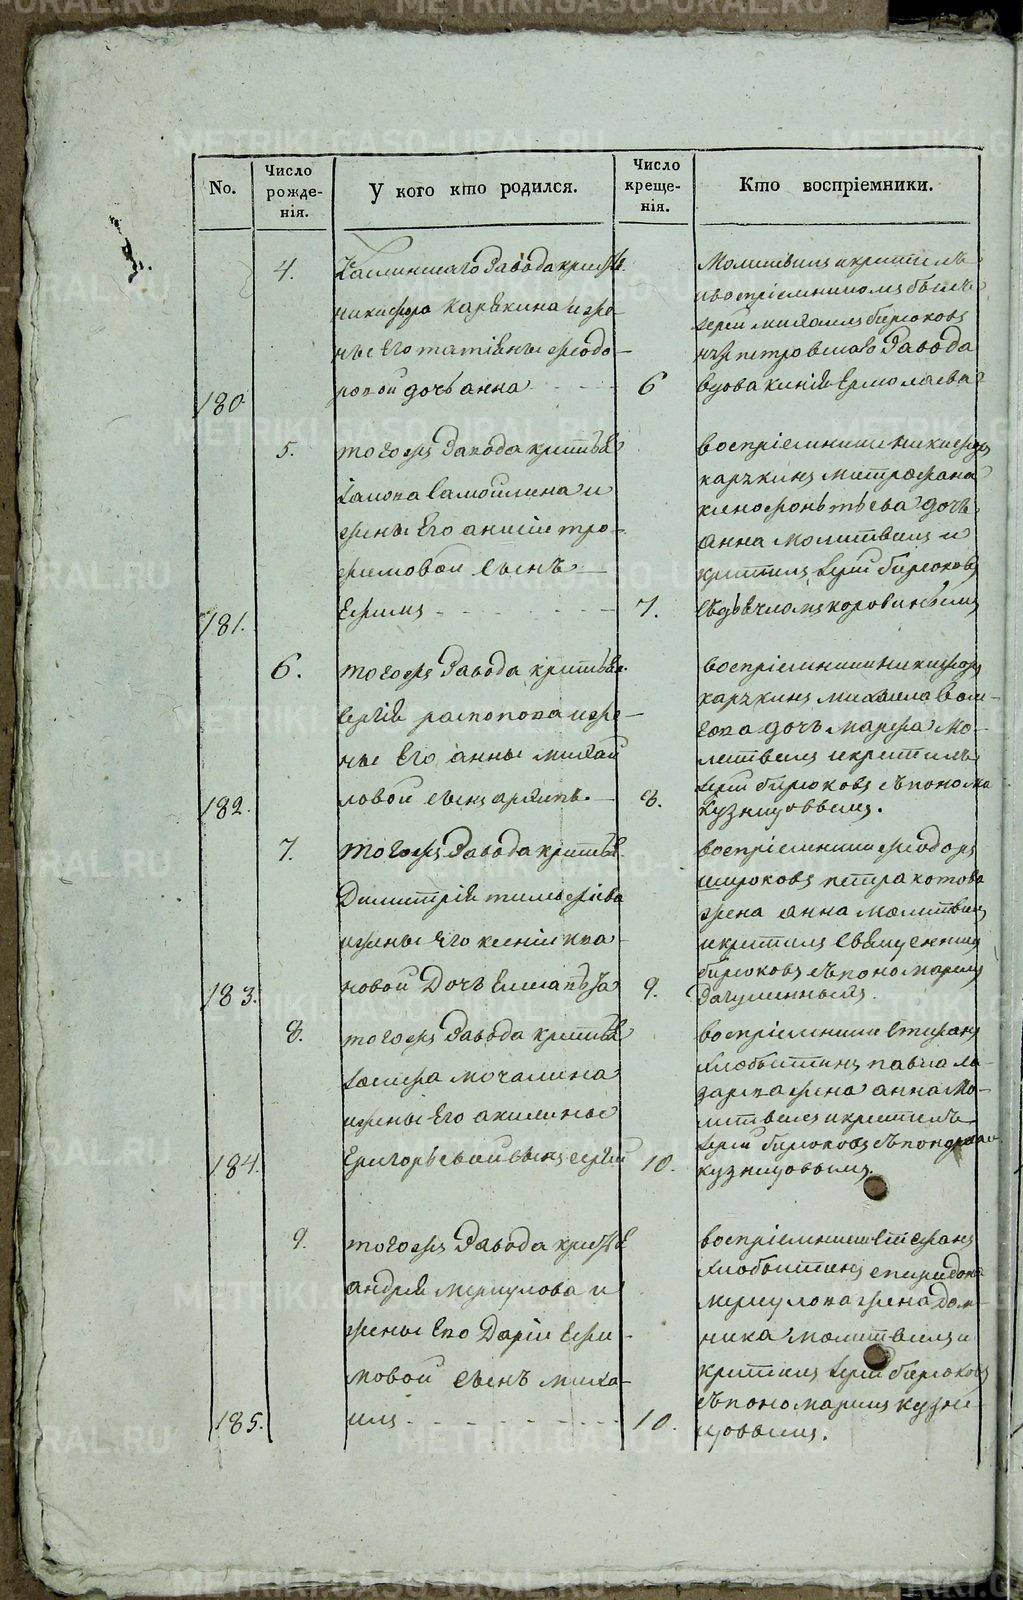 No.
Число рожде-нія.
У кого кто родился.
Число креще-нія.
Кто воспріемники.
4.
Каслинскаго Завода крестья
никифора Карякина и же-
ны его татіяны феодо-
ровой дочь анна
180
6
Молитвилъ и крестилъ
и воспріемникомъ былъ
іерей михаилъ бирюковъ
петровскаго Завода
вдова Ермолаева
5.
тогожъ Завода крестья
самошкина и
жены Его анисіи тро-
фимовой сынъ
Ефимъ
181.
7.
воспріемники никифоръ
карякинъ митрофана
ксенофонтьева дочь
анна молитвилъ и
крестилъ іерей бирюковъ
6.
тогожъ Завода крестья
Сергія распопова и же-
ны Его анны михай
ловой сынъ архипъ.
182.
8.
воспріемники никифоръ
карякинъ михаила
дочь марфа мо-
литвилъ и крестилъ
іерей бирюковъ съ понома
Кузнецовымъ.
7.
тогожъ Завода крестья
Димитрія тимофеева
и жены Его ксеніи ива
новой Дочь Елисавѣта
183.
9.
воспріемники феодоръ
широковъ петра котова
жена анна молитвилъ
и крестилъ священникъ
бирюковъ съ пономаремъ
8.
тогожъ Завода крестья
мочалина
и жены Его акилины
Григорьевой сынъ сергій
184.
10.
воспріемники Стефанъ
хлобыстинъ павла ла-
зарева жена анна мо-
литвилъ и крестилъ
іерей бирюковъ съ пономаремъ
кузнецовымъ.
9.
тогожъ Завода крестья
андрея меркулова и
жены Его Даріи Ефи-
мовой сынъ миха-
илъ
185.
10.
воспріемники Стефанъ
хлобыстинъ спиридона
меркулова жена дом-
ника молитвилъ и
крестилъ іерей бирюковъ
съ пономаремъ кузне-
цовымъ.
METRIKI.GASO-URAL.RU